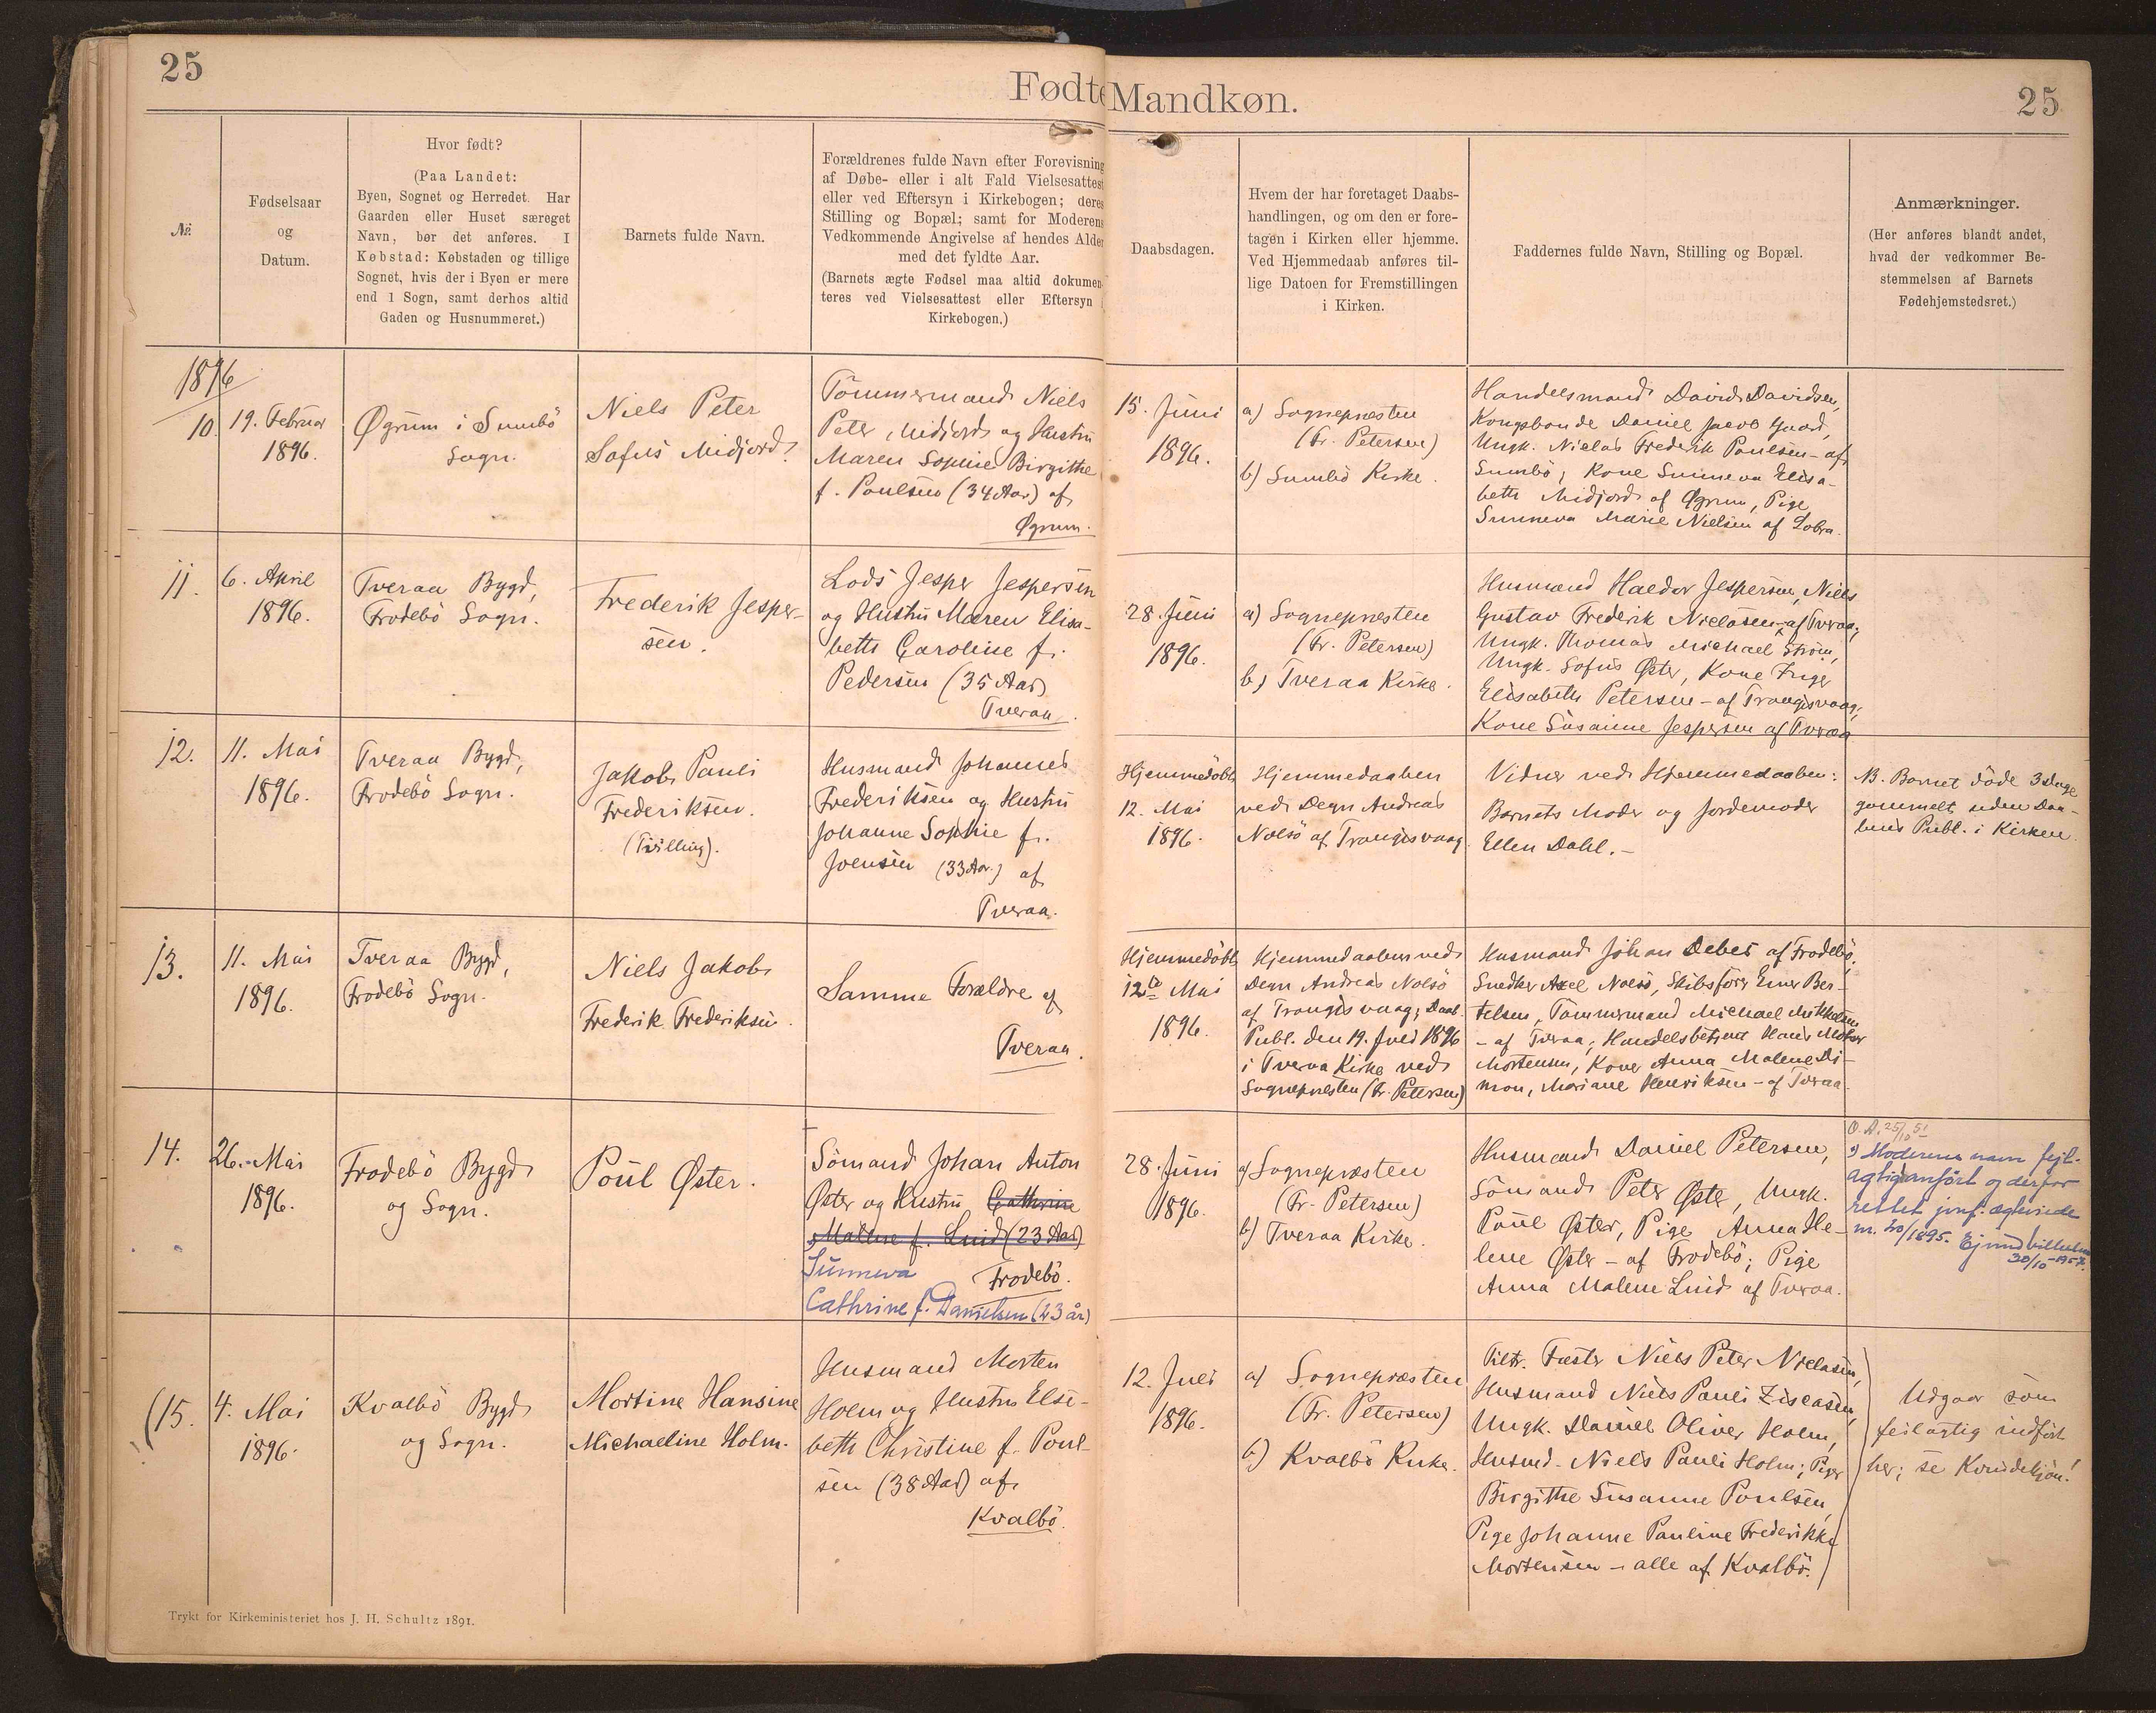 25
Fødte Mandkøn.
25
№
Fødselsaar
og
Datum.
Hvor født?
(Paa Landet:
Byen, Sognet og Herredet. Har
Gaarden eller Huset særeget
Navn, bør det anføres. I
Købstad: Købstaden og tillige
Sognet, hvis der i Byen er mere
end 1 Sogn, samt derhos altid
Gaden og Husnummeret.)
Barnets fulde Navn.
Forældrenes fulde Navn efter Forevisning
af Døbe- eller i alt Fald Vielsesattest
eller ved Eftersyn i Kirkebogen; deres
Stilling og Bopæl; samt for Moderens
Vedkommende Angivelse af hendes Alder
med det fyldte Aar.
(Barnets ægte Fødsel maa altid dokumen-
teres ved Vielsesattest eller Eftersyn i
Kirkebogen.)
Daabsdagen.
Hvem der har foretaget Daabs-
handlingen, og om den er fore-
tagen i Kirken eller hjemme.
Ved Hjemmedaab anføres til-
lige Datoen for Fremstillingen
i Kirken.
Faddernes fulde Navn, Stilling og Bopæl.
Anmærkninger.
(Her anføres blandt andet,
hvad der vedkommer Be-
stemmelsen af Barnets
Fødehjemstedsret.)
1896
10.
19. Februar
1896.
Øgrum i Sumbö
Sogn.
Niels Peter
Sofus Midjord
Tömmermand Niels
Peter Midjord og Hustru
Maren Sophie Birgithe
f. Poulsen (34 Aar) af
Øgrum.
15. Juni
1896.
a) Sognepresten
(Fr. Petersen)
b) Sumbö Kirke.
Handelsmand David Davidsen,
Kongsbonde Daniel Jacob Gaard,
Ungk. Nielas Frederik Poulsen - af
Sumbö; Kone Sunneva Elisa-
beth Midjord af Øgrum, Pige
Sunneva Marie Nielsen af Lobra.
11.
6. April
1896.
Tveraa Bygd,
Frodebö Sogn.
Frederik Jesper-
sen.
Lods Jesper Jespersen
og Hustru Maren Elisa-
beth Caroline f.
Pedersen (35 Aar)
Tveraa.
28. Juni
1896.
a) Sognepresten
(Fr. Petersen)
b) Tveraa Kirke.
Husmand Haldor Jespersen, Niels
Gustav Frederik Nielasen - af Tveraa;
Ungk. Thomas Michael Ström,
Ungk. Sofus Øster, Kone Inger
Elisabeth Petersen - af Trangisvaag;
Kone Susanne Jespersen af Tveraa
12.
11. Mai
1896.
Tveraa Bygd,
Frodebö Sogn.
Jakob Pauli
Frederiksen.
(Tvilling).
Husmand Johannes
Frederiksen og Hustru
Johanne Sophie f.
Joensen (33 Aar) af
Tveraa.
Hjemmedöbt
12. Mai
1896.
Hjemmedaaben
ved Degn Andreas
Nolsö af Trangisvaag
Vidner ved Hjemmedaaben:
Barnets Moder og Jordemoder
Ellen Dahl.-
NB. Barnet döde 3 Dage
gammelt uden Daa-
bens Publ. i Kirken.
13.
11. Mai
1896.
Tveraa Bygd,
Frodebö Sogn.
Niels Jakob
Frederik Frederiksen.
Samme Forældre af
Tveraa.
Hjemmedöbt
12te Mai
1896.
Hjemmedaaben ved
Degn Andreas Nolsö
af Trangisvaag; Daab.
Publ. den 19. Juli 1896
i Tveraa Kirke ved
Sognepresten (Fr. Petersen)
Husmand Johan Debes af Frodebö,
Snedker Axel Nolsö, Skibsförer Ber-
telsen, Tömmermand Michael Mikkelsen
- af Tveraa; Handelsbetjent Hans
Mortensen, Koner Anna Malene Di-
mon, Mariane Henriksen - af Tveraa.
14.
26. Mai
1896.
Frodebö Bygd
og Sogn.
Poul Øster.
Sömand Johan Anton
Øster og Hustru Cathrine
Malene f. Lund (23 Aar)
Sunneva
Frodebö.
Cathrine f. Danielsen (23 år)
28. Juni
1896.
a) Sognepræsten
(Fr. Petersen)
b) Tveraa Kirke.
Husmand Daniel Petersen,
Sömand Peter Øster, Ungk.
Poul Øster, Pige Anna He-
lene Øster - af Frodebö; Pige
Anna Malene Lund af Tveraa.
Moderens navn fejl-
agtig anført og derfor
rettet jvnf. ægteviede
nr. 20/1895. Ejvind Vilhelm
30/10-1957.
(15.
4. Mai
1896.
Kvalbö Bygd
og Sogn.
Mortine Hansine
Michaeline Holm.
Husmand Morten
Holm og Hustru Else-
beth Christine f. Poul-
sen (38 Aar) af
Kvalbö.
12. Juli
1896.
a) Sognepræsten
(Fr. Petersen)
b) Kvalbö Kirke.
Fæster Niels Peter Nielasen,
Husmand Niels Pauli Ziscasen,
Ungk. Daniel Oliver Holm,
Husmd. Niels Pauli Holm; Pige
Birgithe Susanne Poulsen,
Pige Johanne Pauline Frederikke
Mortensen - alle af Kvalbö.
Udgaar som
feilagtig indfört
her; se Kvindekjön!
Trykt for Kirkeministeriet hos J. H. Schultz 1891.